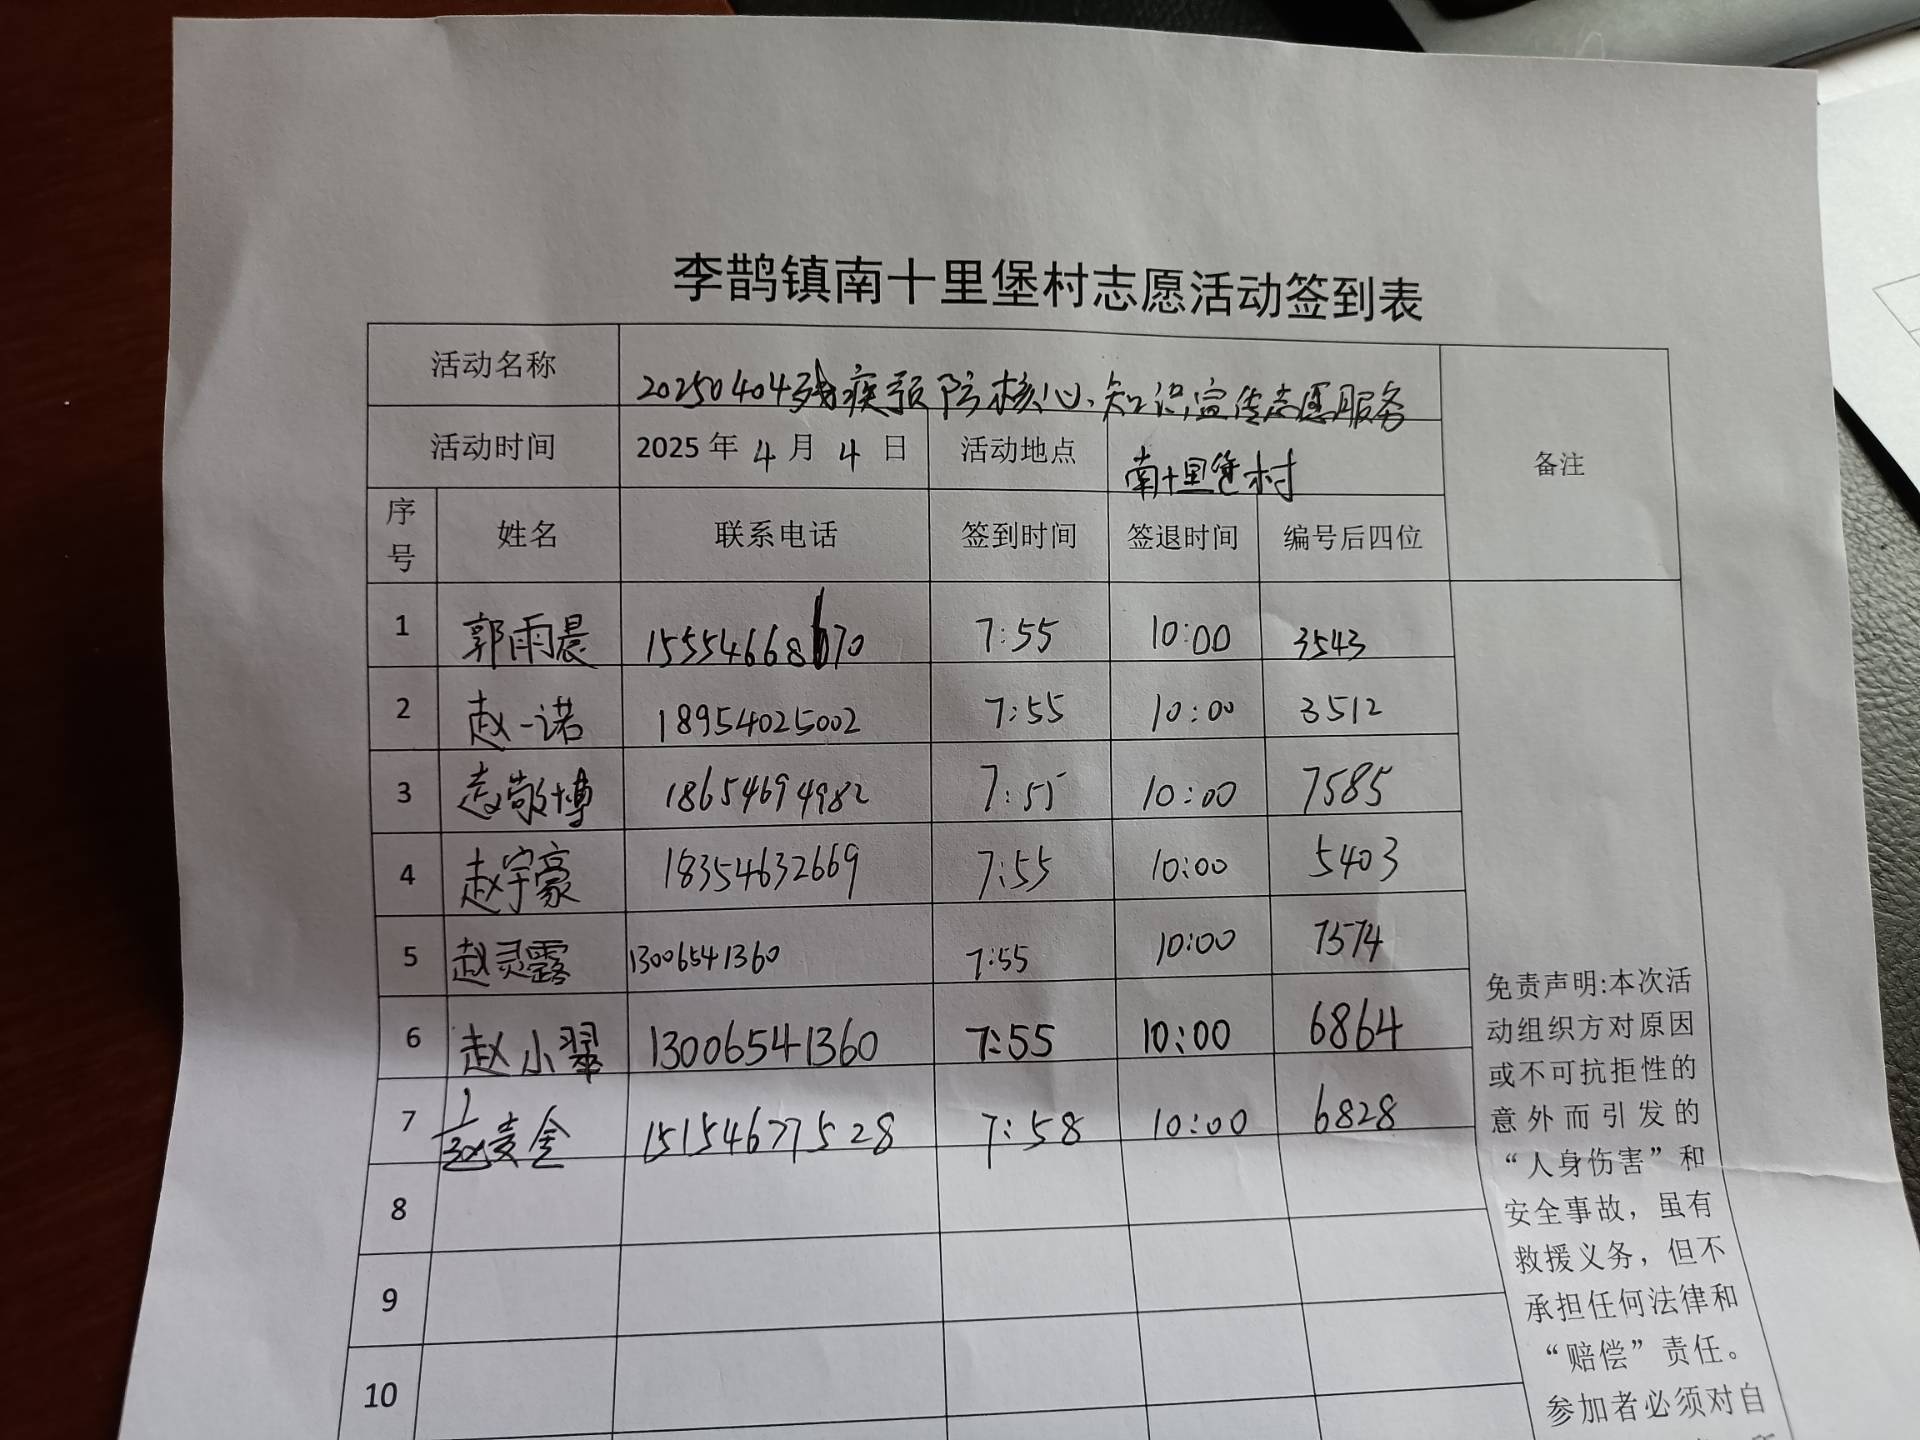 李鹊镇南十里堡村志愿活动签到表
活动名称 20250404残疾预防核心知识宣传志愿服务
备注
活动时间 2025年4月4日 活动地点 南十里堡村
序号 姓名 联系电话 签到时间 签退时间 编号后四位
1 郭雨晨 15554668670 7:55 10:00 3543
2 赵一诺 18954025002 7:55 10:00 3512
3 赵敬博 18654694982 7:55 10:00 7585
4 赵宇豪 18354632669 7:55 10:00 5403
5 赵灵露 13006541360 7:55 10:00 7574
6 赵小翠 13006541360 7:55 10:00 6864
7 赵麦金 15154677528 7:58 10:00 6828
8
9
10
免责声明:本次活
动组织方对原因
或不可抗拒性的
意外而引发的
“人身伤害”和
安全事故，虽有
救援义务，但不
承担任何法律和
“赔偿”责任。
参加者必须对自